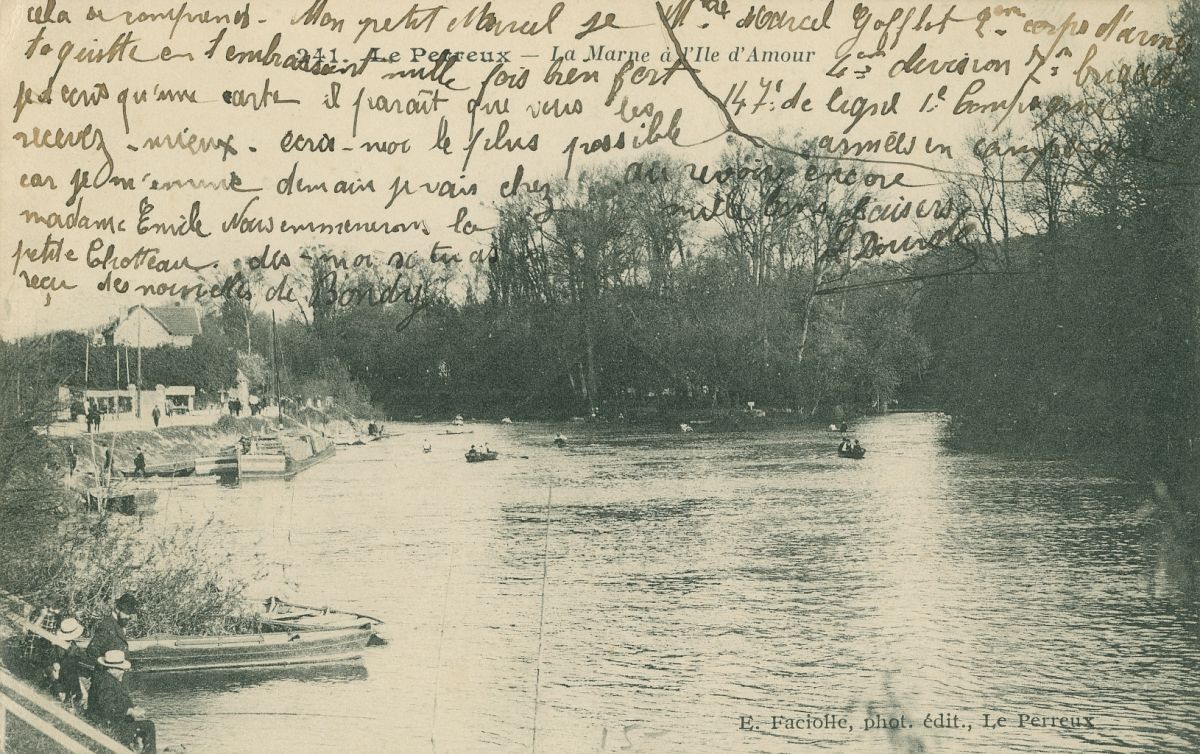 cela se comprend. Mon petit Marcel je
te quitte en t'embrassant mille fois bien fort
je écris qu'une carte il paraît que vous les
recevez mieux. écris-moi le plus possible
car je m'ennuie demain je vais chez
madame Emile Nous emmenerons la
petite Chotteau. dis-moi si tu as
reçu des nouvelles de Bondy
au revoir encore
mille bons baisers
Mr Marcel Gofflot 2em corps d'armé
4em division 7em brigade
147e de ligne 1e Compagnie
armées en campagne
241. Le Perreux — La Marne à l'Ile d'Amour
E. Faciolle, phot. édit., Le Perreux
15